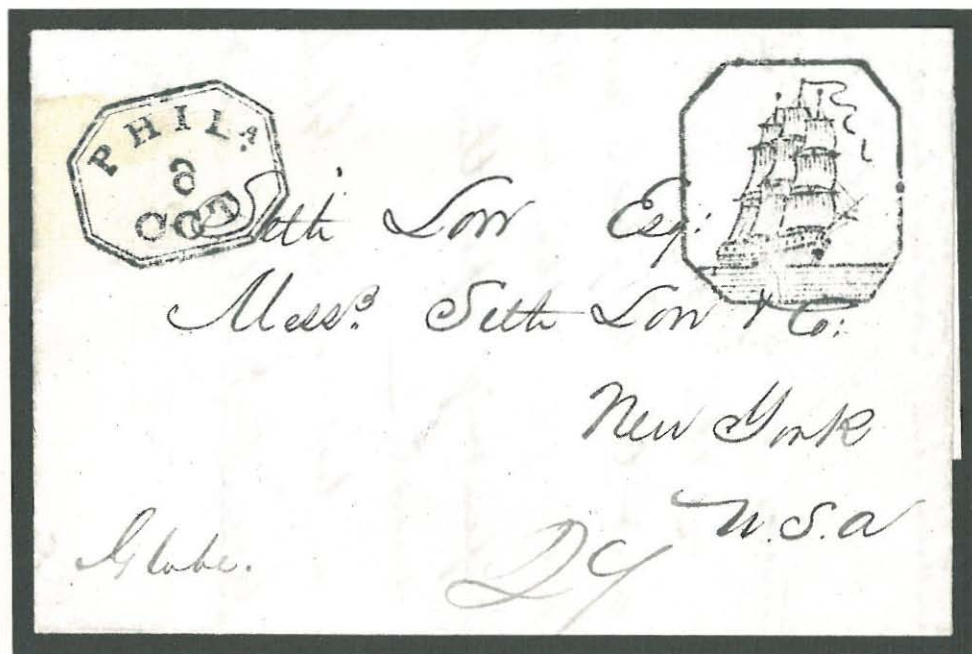 PHILA
6
OCT
Seth Low Esq:
Messrs. Seth Low & Co:
New York
U.S.a
Globe.